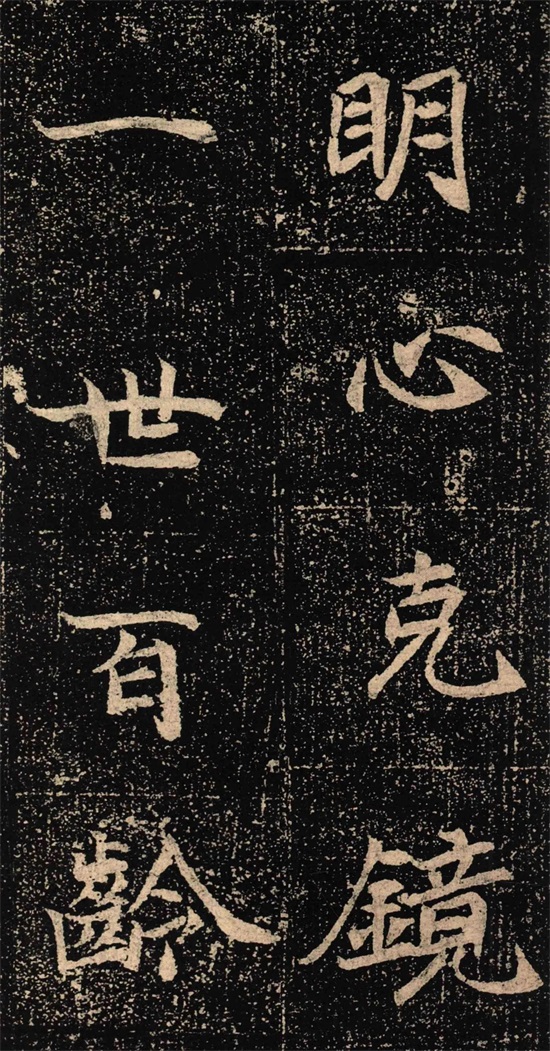 明心克鏡
一世百齡